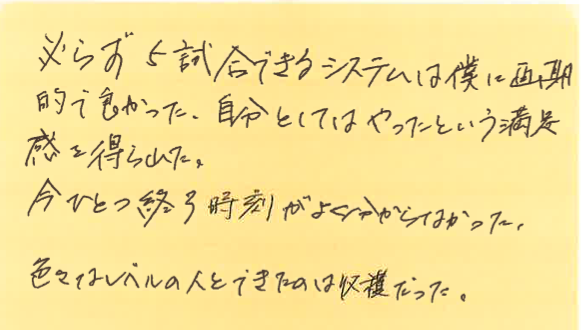 必らず5試合できるシステムは僕に画期
的で良かった、自分としてはやったという満足
感を得られた。
今ひとつ終了時刻がよく分からなかった。
色々なレベルの人とできたのは収穫だった。